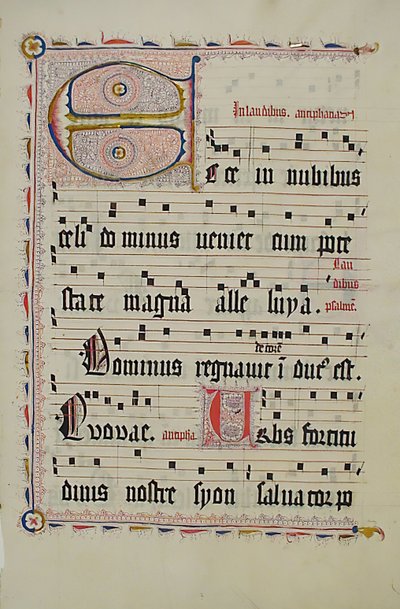 In laudibus. antiphana
Ec ce in nubibus
celi do minus ueniet cum pote
Lau
dibus
state magna alle luya. psalmē.
Dominus regnauit ī est.
Euouae. antipha. Urbs fortitu
dinis nostre syon saluator po